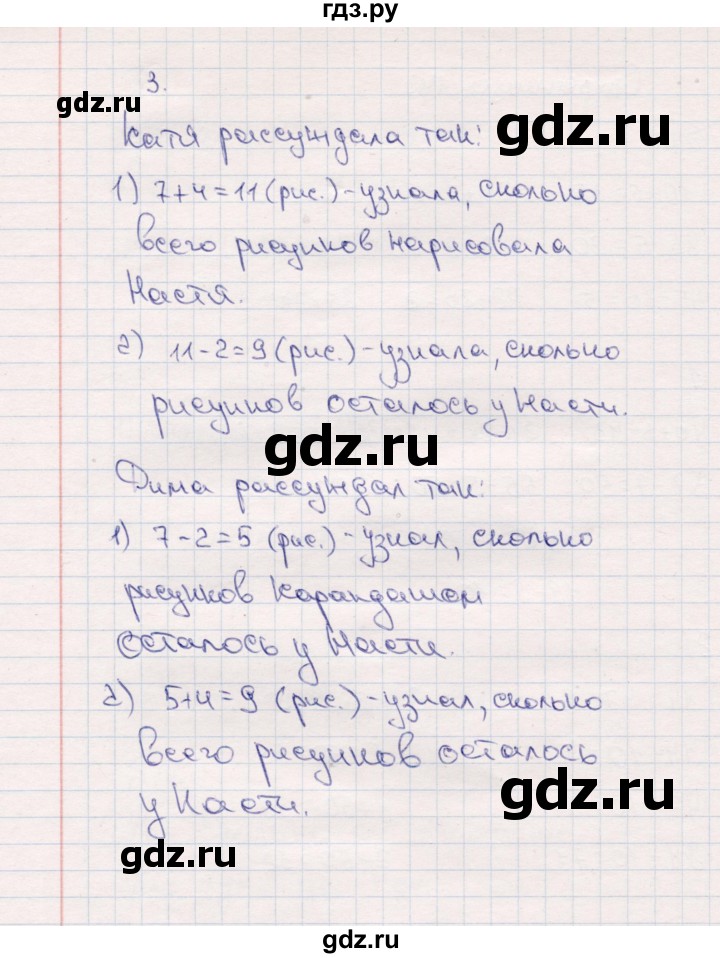 гдз.ру
3.
gdz.ru
Катя рассуждала так:
gdz.ru
1) 7+4=11 (рис.) - узнала, сколько
всего рисунков нарисовала
Настя.
2) 11-2=9 (рис.) - узнала, сколько
рисунков осталось у Насти.
gdz.ru
Дима рассуждал так:
1) 7-2=5 (рис.) - узнал, сколько
рисунков карандашом
осталось у Насти.
2) 5+4=9 (рис.) - узнал, сколько
всего рисунков осталось
gdz.ru
у Касти.
gdz.ru
gdz.ru